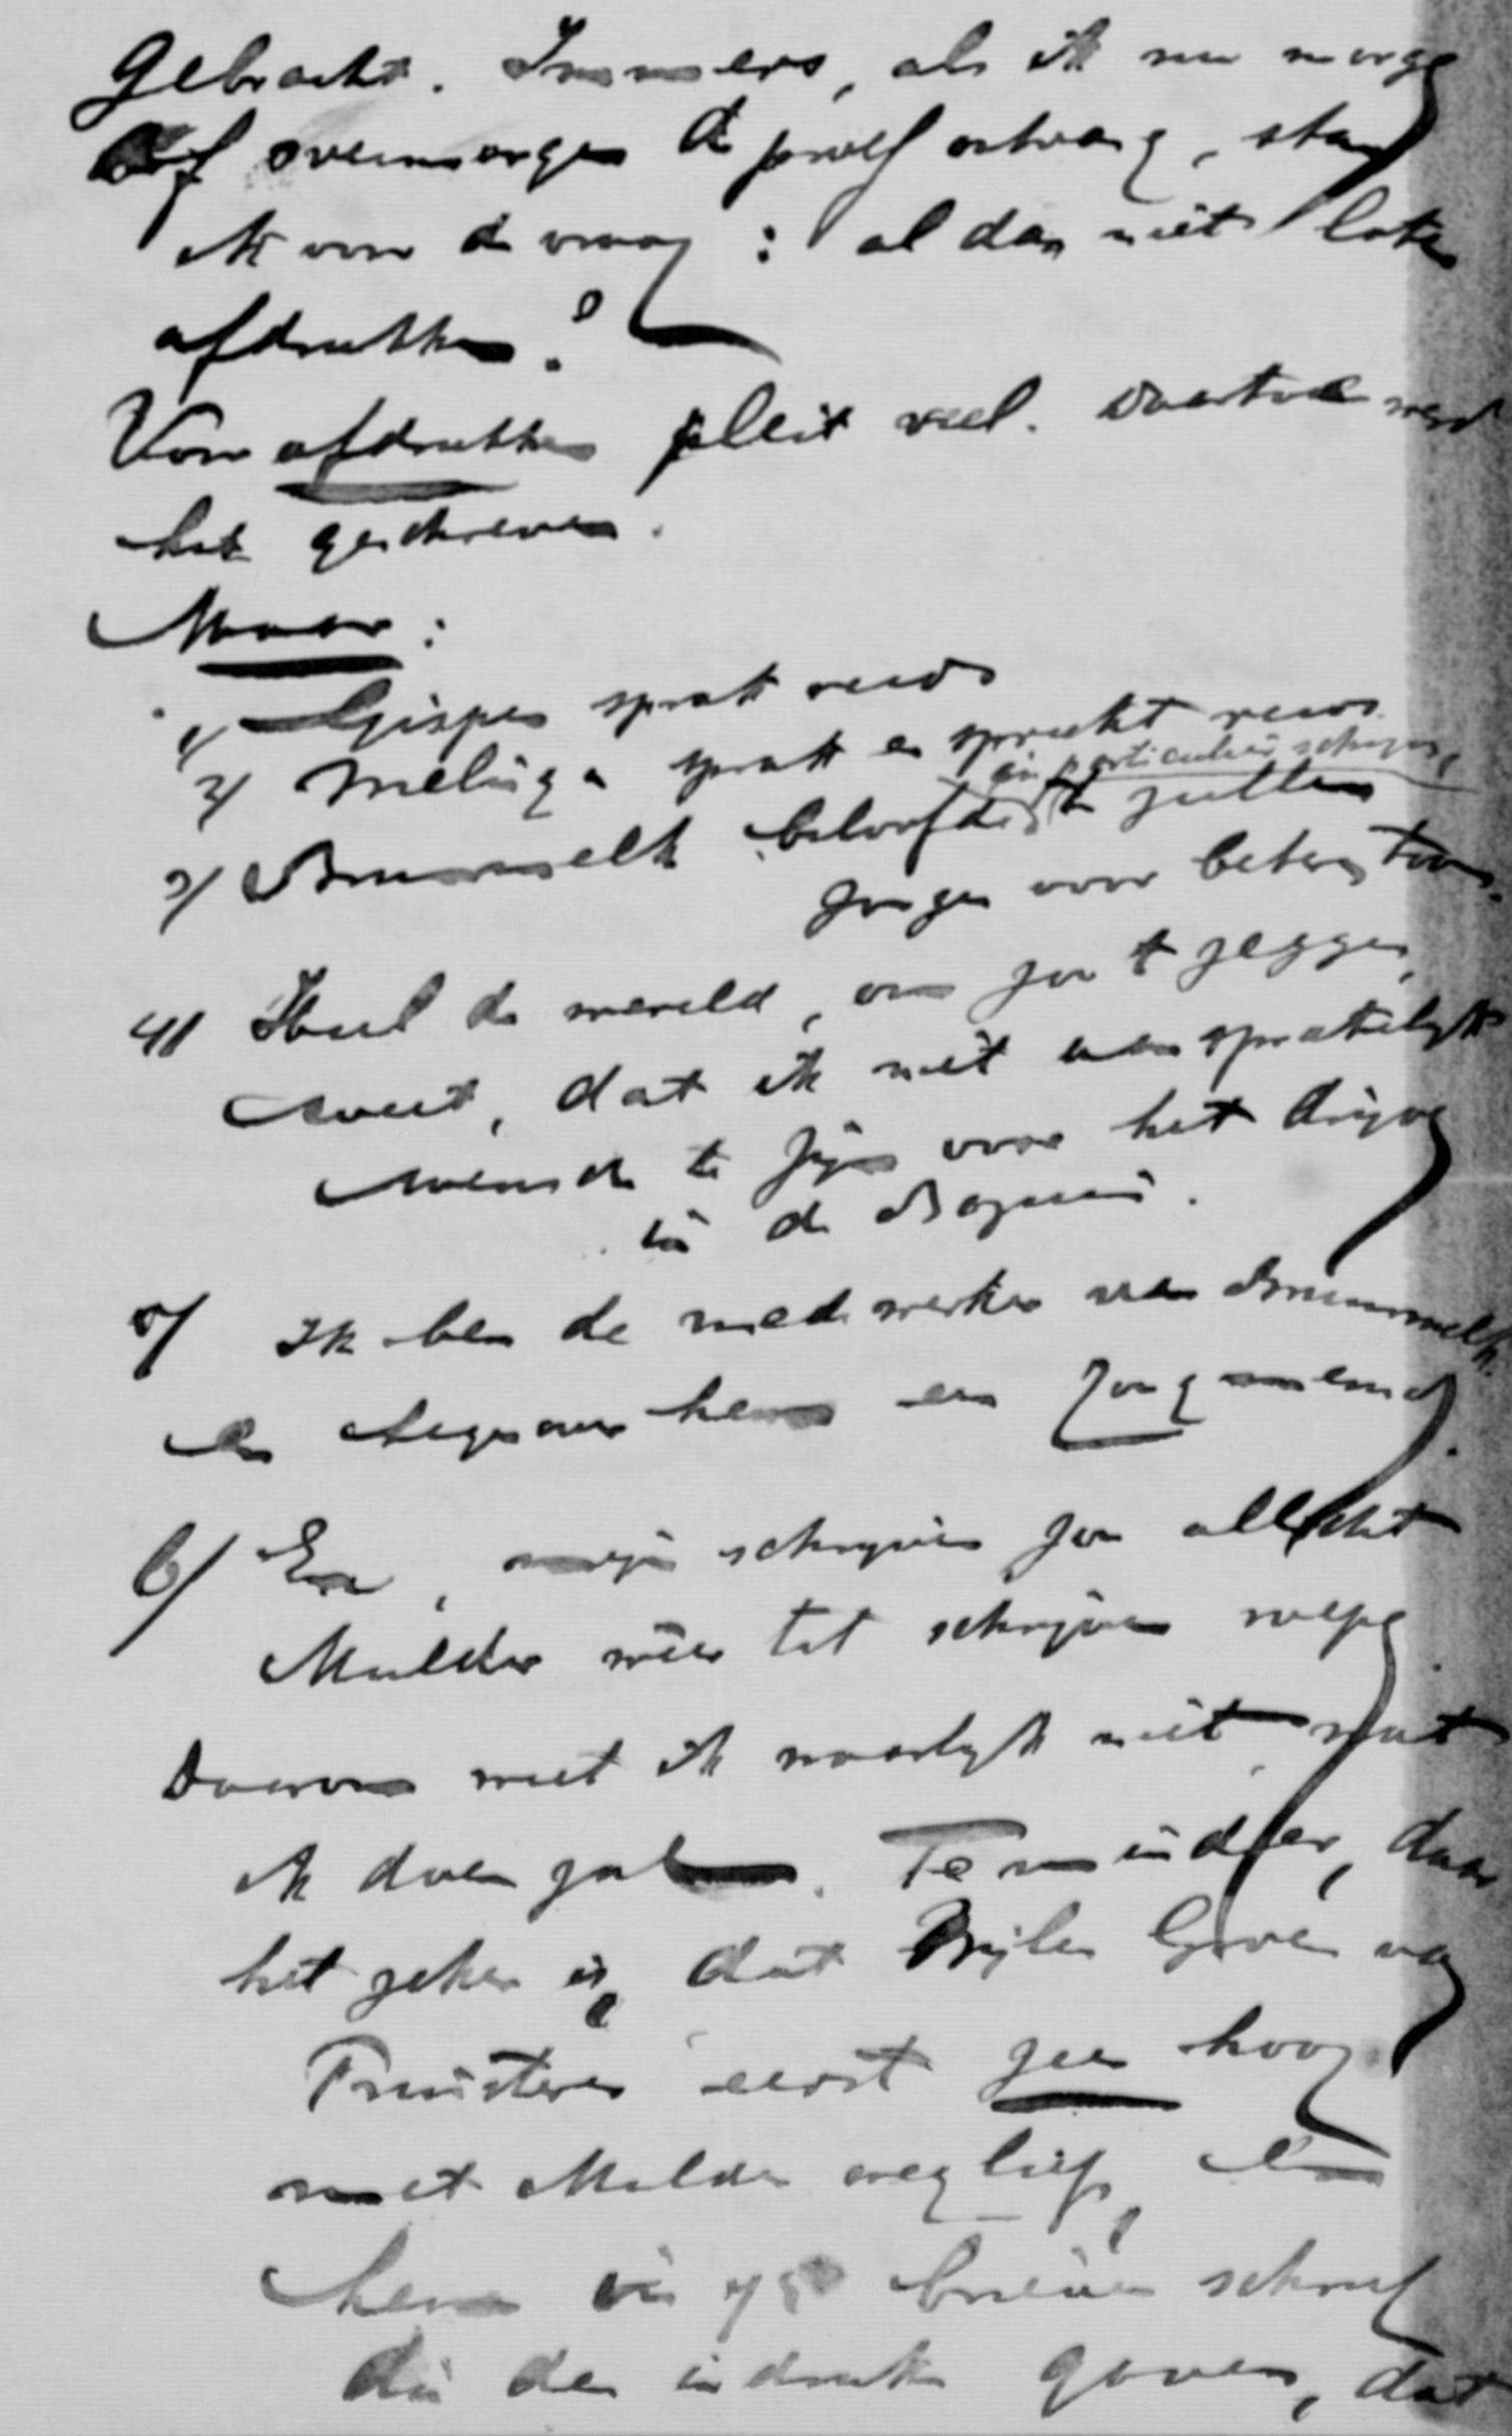 Gebracht. Immers, als ik nu morgen
of overmorgen de proef ontvang, sta
ik voor de vraag: al dan niet laten
afdrukken?
Voor afdrukken pleit veel. Daartoe werd
het geschreven.
Maar:
1/ Gispen sprak reeds
2/ Melinga sprak en spreekt reeds
in particulier schrijven,
3/ Brummelk beloofde te zullen
zorgen voor beteren toon.
4/ Heel de wereld, om zoo te zeggen,
weet, dat ik niet aansprakelijk
wensch te zijn voor het drijven
in de Bazuin.
5/ Ik ben de medewerker van Brummelk.
en tegenover hem een jongmensch.
6/ En, mijn schrijven zou allicht
Mulder weer tot schrijven roepen.
Daarom weet ik waarlijk niet wat
ik doen zal. Te minder, daar
het zeker is, dat Groen van
Prinsterer eerst zeer hoog
met Mulder wegliep, en
hem in brieven schreef
die den indruk gaven, dat